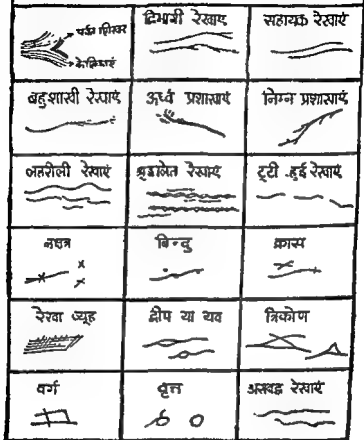 द्विभागी रेखाएं
सहायक रेखाएं
बहुशाखी रेखाएं
ऊर्ध्व प्रशाखाएं
निम्न प्रशाखाएं
लहरीली रेखाएं
रेखाएं
टूटी हुई रेखाएं
नक्षत्र
बिन्दु
क्रास
रेखा व्यूह
द्वीप या यव
त्रिकोण
वर्ग
वृत्त
असंबद्ध रेखाएं